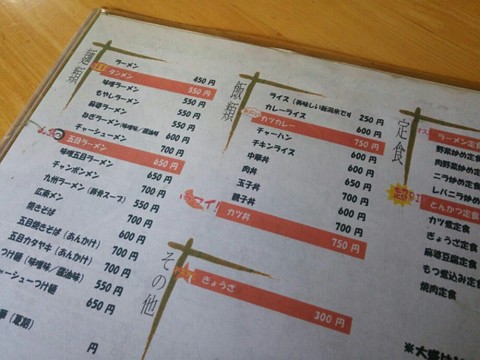 麺類
ラーメン 450円
タンメン 550円
味噌ラーメン 550円
もやしラーメン 550円
麻婆ラーメン 550円
ねぎラーメン(味噌味/醤油味) 600円
チャーシューメン 700円
五目ラーメン 650円
味噌五目ラーメン 700円
チャンポンメン 700円
九州ラーメン(豚骨スープ) 550円
広東メン 700円
焼きそば 600円
五目焼きそば(あんかけ) 700円
五目カタヤキ(あんかけ) 700円
つけ麺(味噌味/醤油味) 550円
ャーシューつけ麺 650円
(夏期) 円
飯類
ライス(美味しい新潟米です 250円
カレーライス 600円
カツカレー 750円
チャーハン 600円
チキンライス 600円
中華丼 650円
肉丼 700円
玉子丼 600円
親子丼 700円
カツ丼 750円
その他
ぎょうざ 300円
定食
ラーメン定食
野菜炒め定食
肉野菜炒め定
ニラ炒め定食
レバニラ炒め定
とんかつ定食
カツ煮定食
ぎょうざ定食
麻婆豆腐定食
もつ煮込み定食
焼肉定食
※大盛は